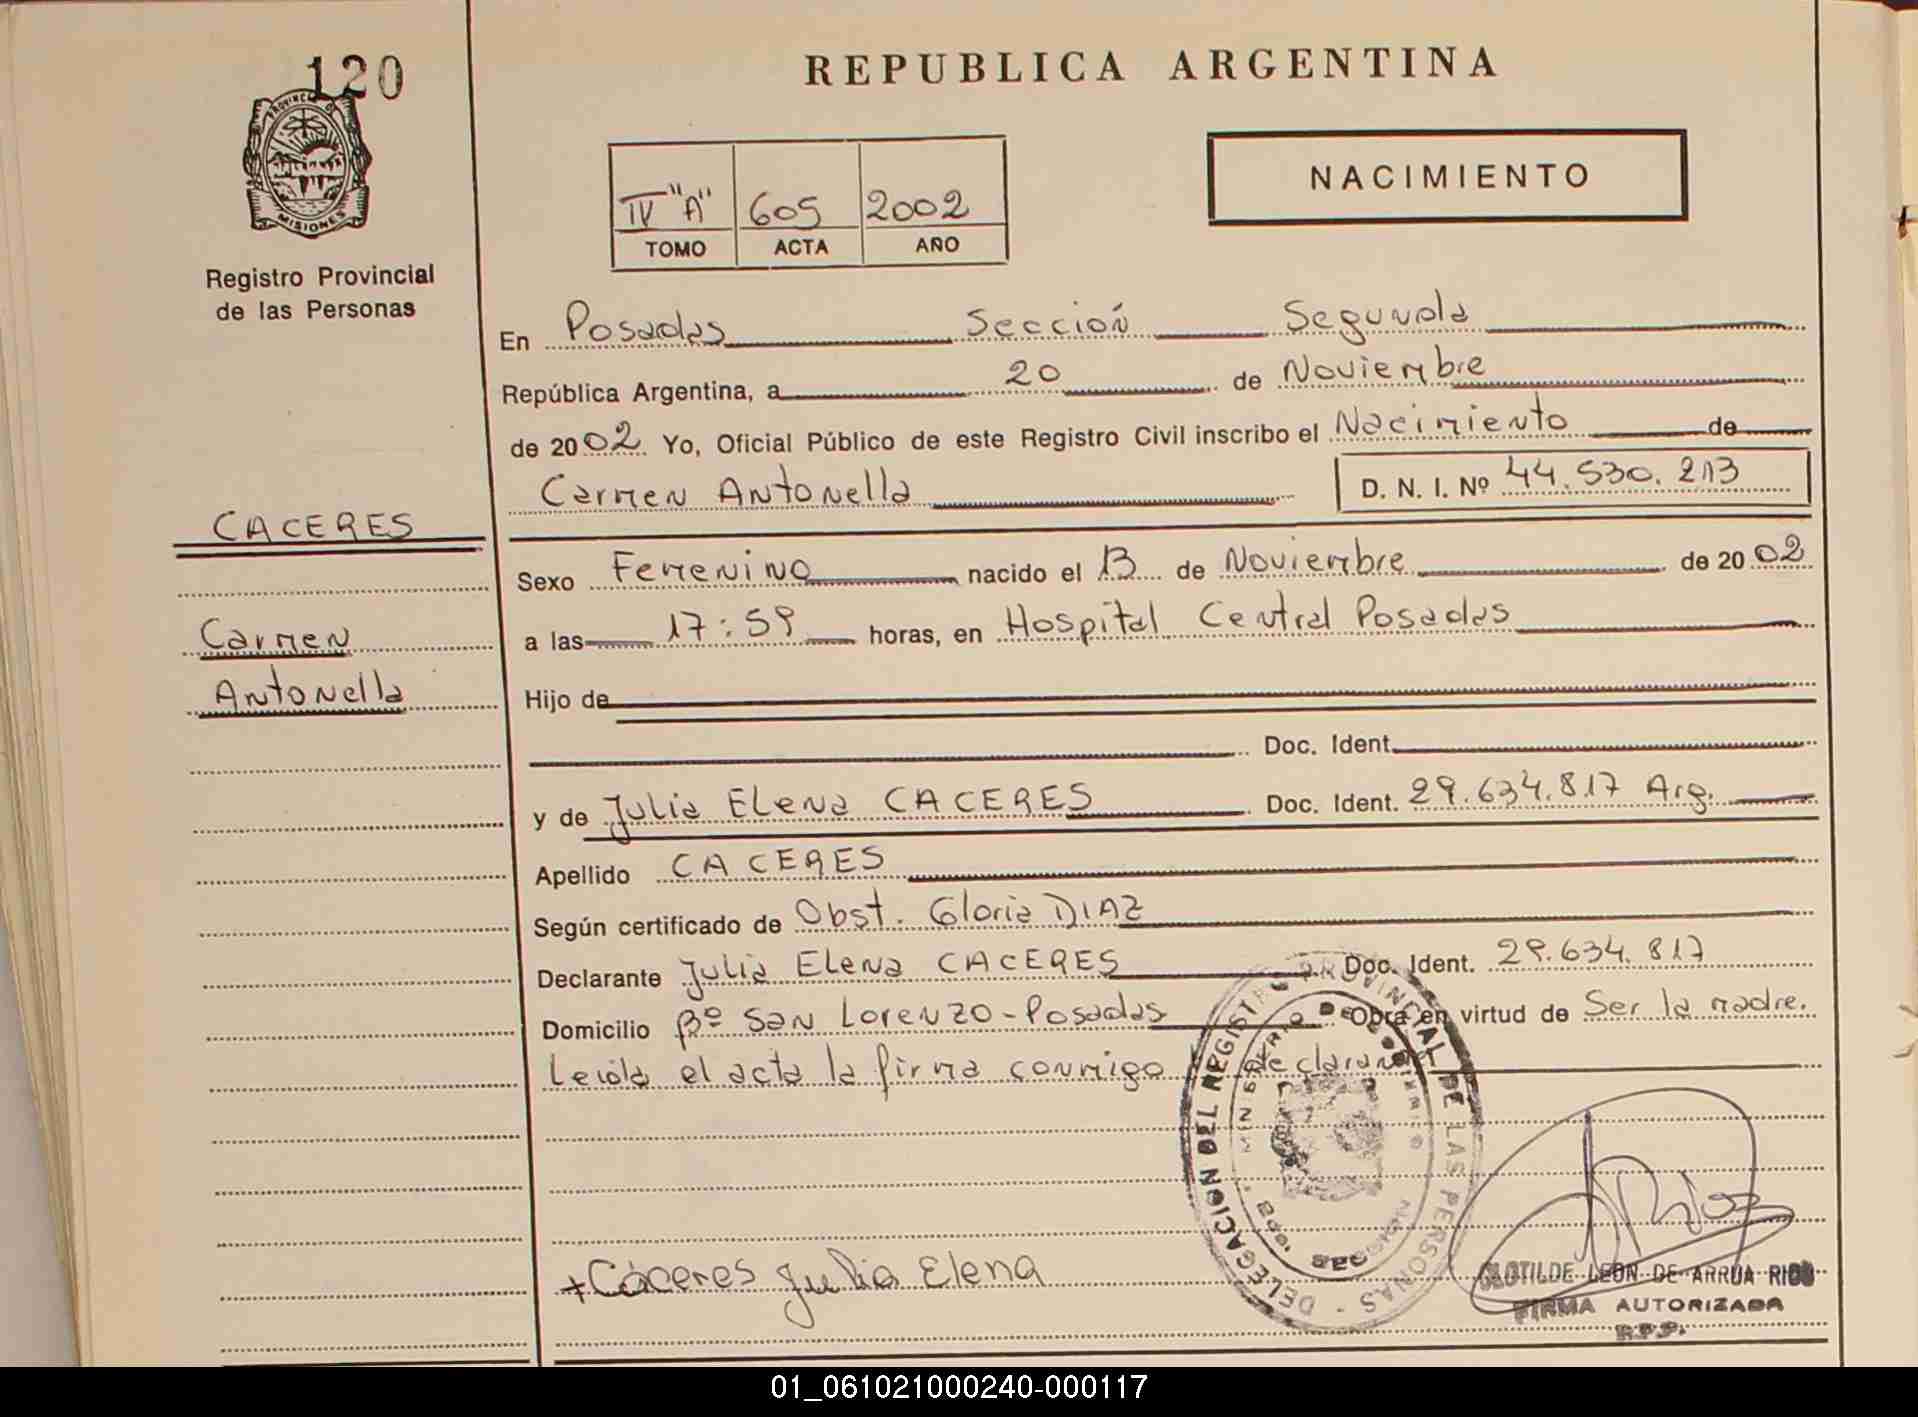 120
PROVINCIA DE
MISIONES
Registro Provincial
de las Personas
CACERES
Carmen
Antonella
REPUBLICA ARGENTINA
IV "A" 605 2002
TOMO ACTA AÑO
NACIMIENTO
En Posadas Sección Segunda
República Argentina, a 20 de Noviembre
de 2002 Yo, Oficial Público de este Registro Civil inscribo el Nacimiento de
Carmen Antonella D. N. I. Nº 44.530.213
Sexo Femenino nacido el 13 de Noviembre de 2002
a las 17:59 horas, en Hospital Central Posadas
Hijo de
Doc. Ident.
y de Julia Elena CACERES Doc. Ident. 29.634.817 Arg.
Apellido CACERES
Según certificado de Obst. Gloria DIAZ
Declarante Julia Elena CACERES Doc. Ident. 29.634.817
Domicilio Bº San Lorenzo - Posadas Obra en virtud de Ser la madre.
Leída el acta la firma conmigo declarante
DELEGACION DEL REGISTRO PROVINCIAL DE LAS PERSONAS
MINISTERIO DE GOBIERNO
MISIONES
Cáceres Julia Elena
Rios
CLOTILDE LEON DE ARRUA RIOS
FIRMA AUTORIZADA
R.P.P.
01_061021000240-000117